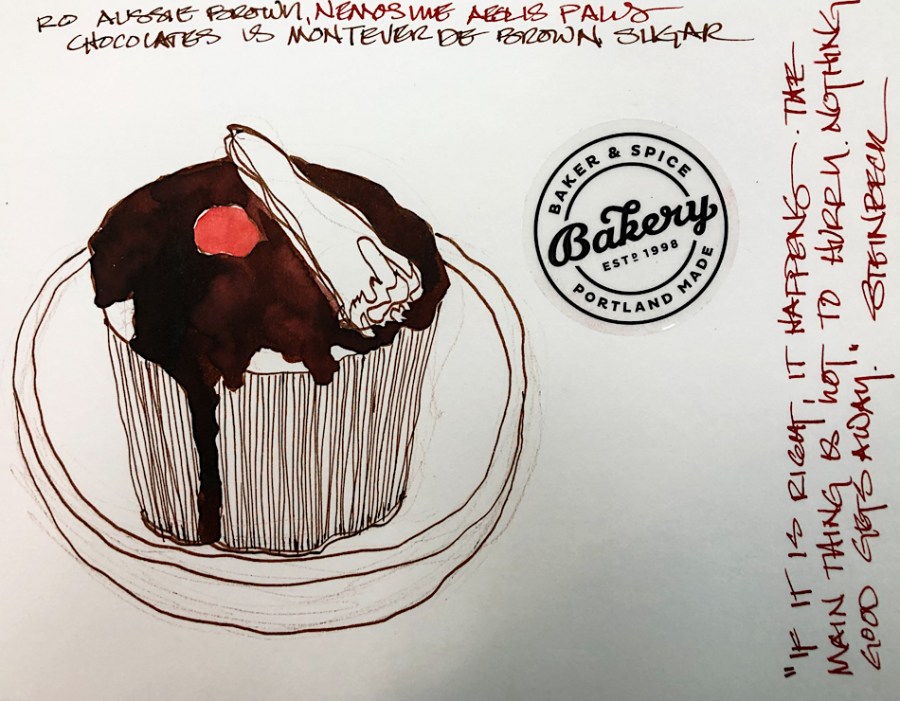 RO AUSSIE BROWN, NEMOSINE AEOLIS PALUS
CHOCOLATES IS MONTEVERDE BROWN SUGAR
BAKER & SPICE
Bakery
ESTD 1998
PORTLAND MADE
"IF IT IS RIGHT, IT HAPPENS. THE
MAIN THING IS NOT TO HURRY. NOTHING
GOOD GETS AWAY." STEINBECK